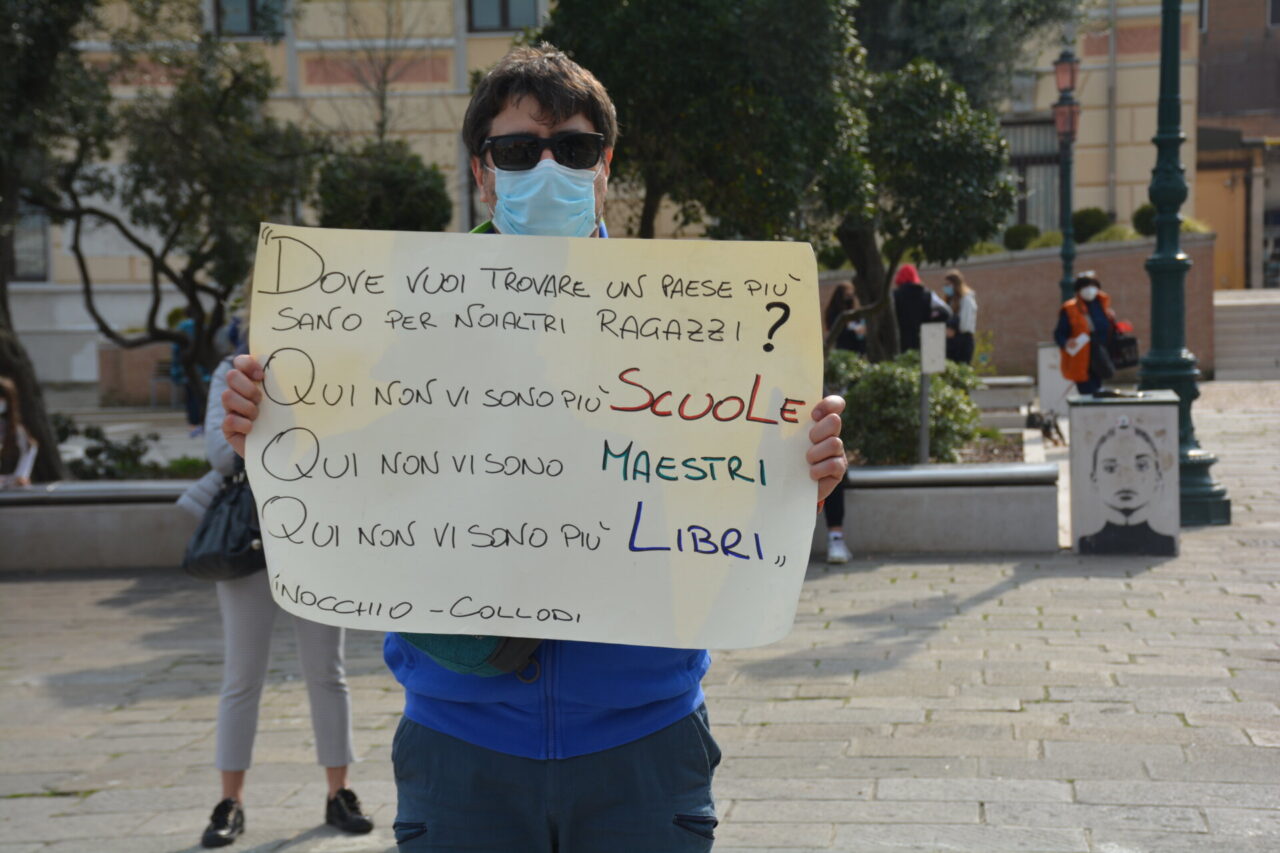 "DOVE VUOI TROVARE UN PAESE PIÙ
SANO PER NOIALTRI RAGAZZI?
QUI NON VI SONO PIÙ SCUOLE
QUI NON VI SONO MAESTRI
QUI NON VI SONO PIÙ LIBRI"
INOCCHIO - COLLODI